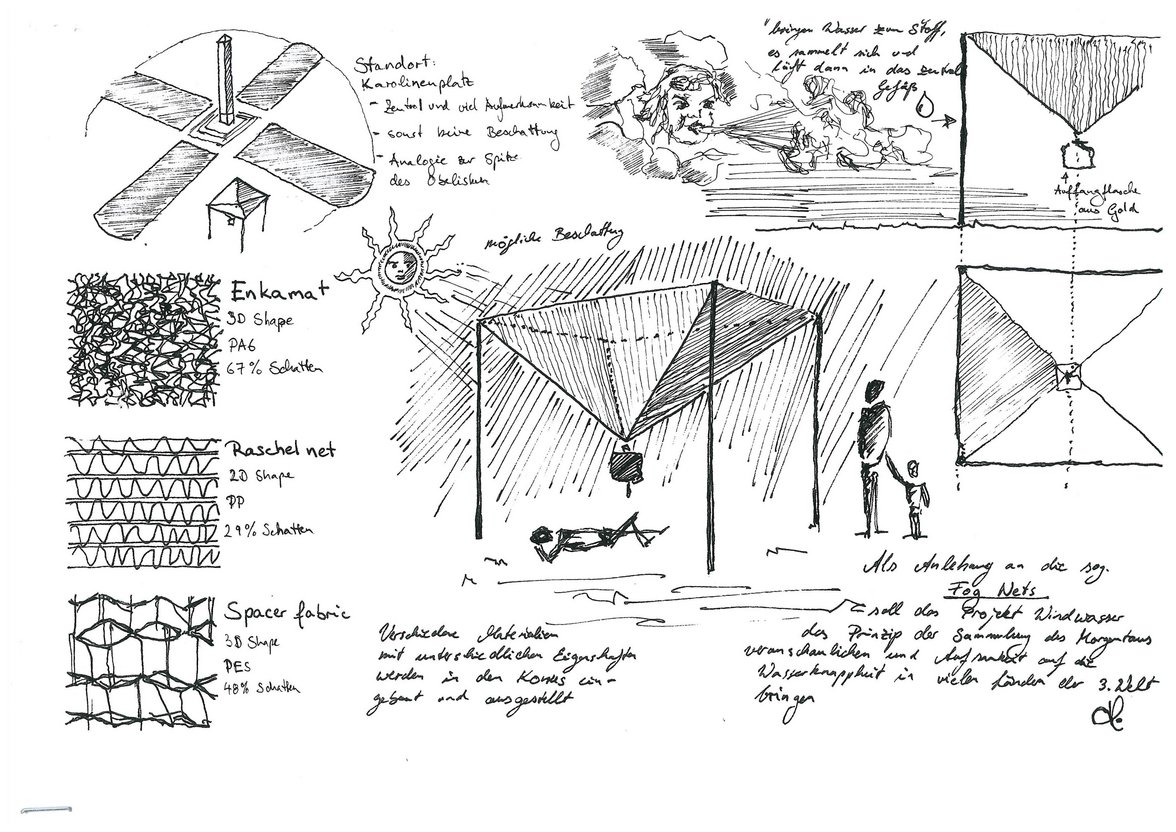 Standort:
Karolinenplatz
- Zentral und viel Aufmerksamkeit
- sonst keine Beschattung
- Analogie zur Spitze
des Obelisken
"bringen Wasser zum Stoff,
es sammelt sich und
läuft dann in das zentral
Gefäß
Auffangflasche
aus Gold
mögliche Beschattung
Enkamat
3D Shape
PA6
67% Schatten
Raschel net
2D Shape
PP
29% Schatten
Spacer fabric
3D Shape
PES
48% Schatten
Verschiedene Materialien
mit unterschiedlichen Eigenschaften
werden in den Konus ein-
gebaut und ausgestellt
Als Anlehnung an die sog.
Fog Nets
soll das Projekt Windwasser
das Prinzip der Sammlung des Morgentaus
veranschaulichen und auf die
Wasserknappheit in vielen Ländern der 3. Welt
bringen